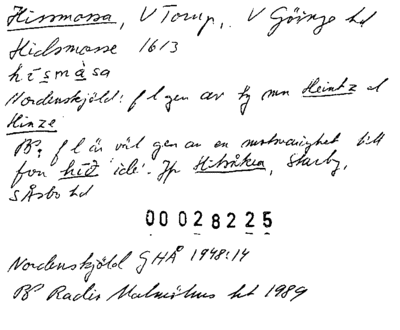 Hissmossa, V Torup, V Göinge hd
Hidsmosse 1613
hismåsa
Nordenskjöld: f l gen av ty mn Heintz el
Hinze
B⁰: f l är väl gen av en motsvarighet till
fvn híð 'ide'. Jfr Hitsåkra, Starby,
S Åsbo hd
00028225
Nordenskjöld GHÅ 1948:14
B⁰ Radis Malmöhus ht 1989